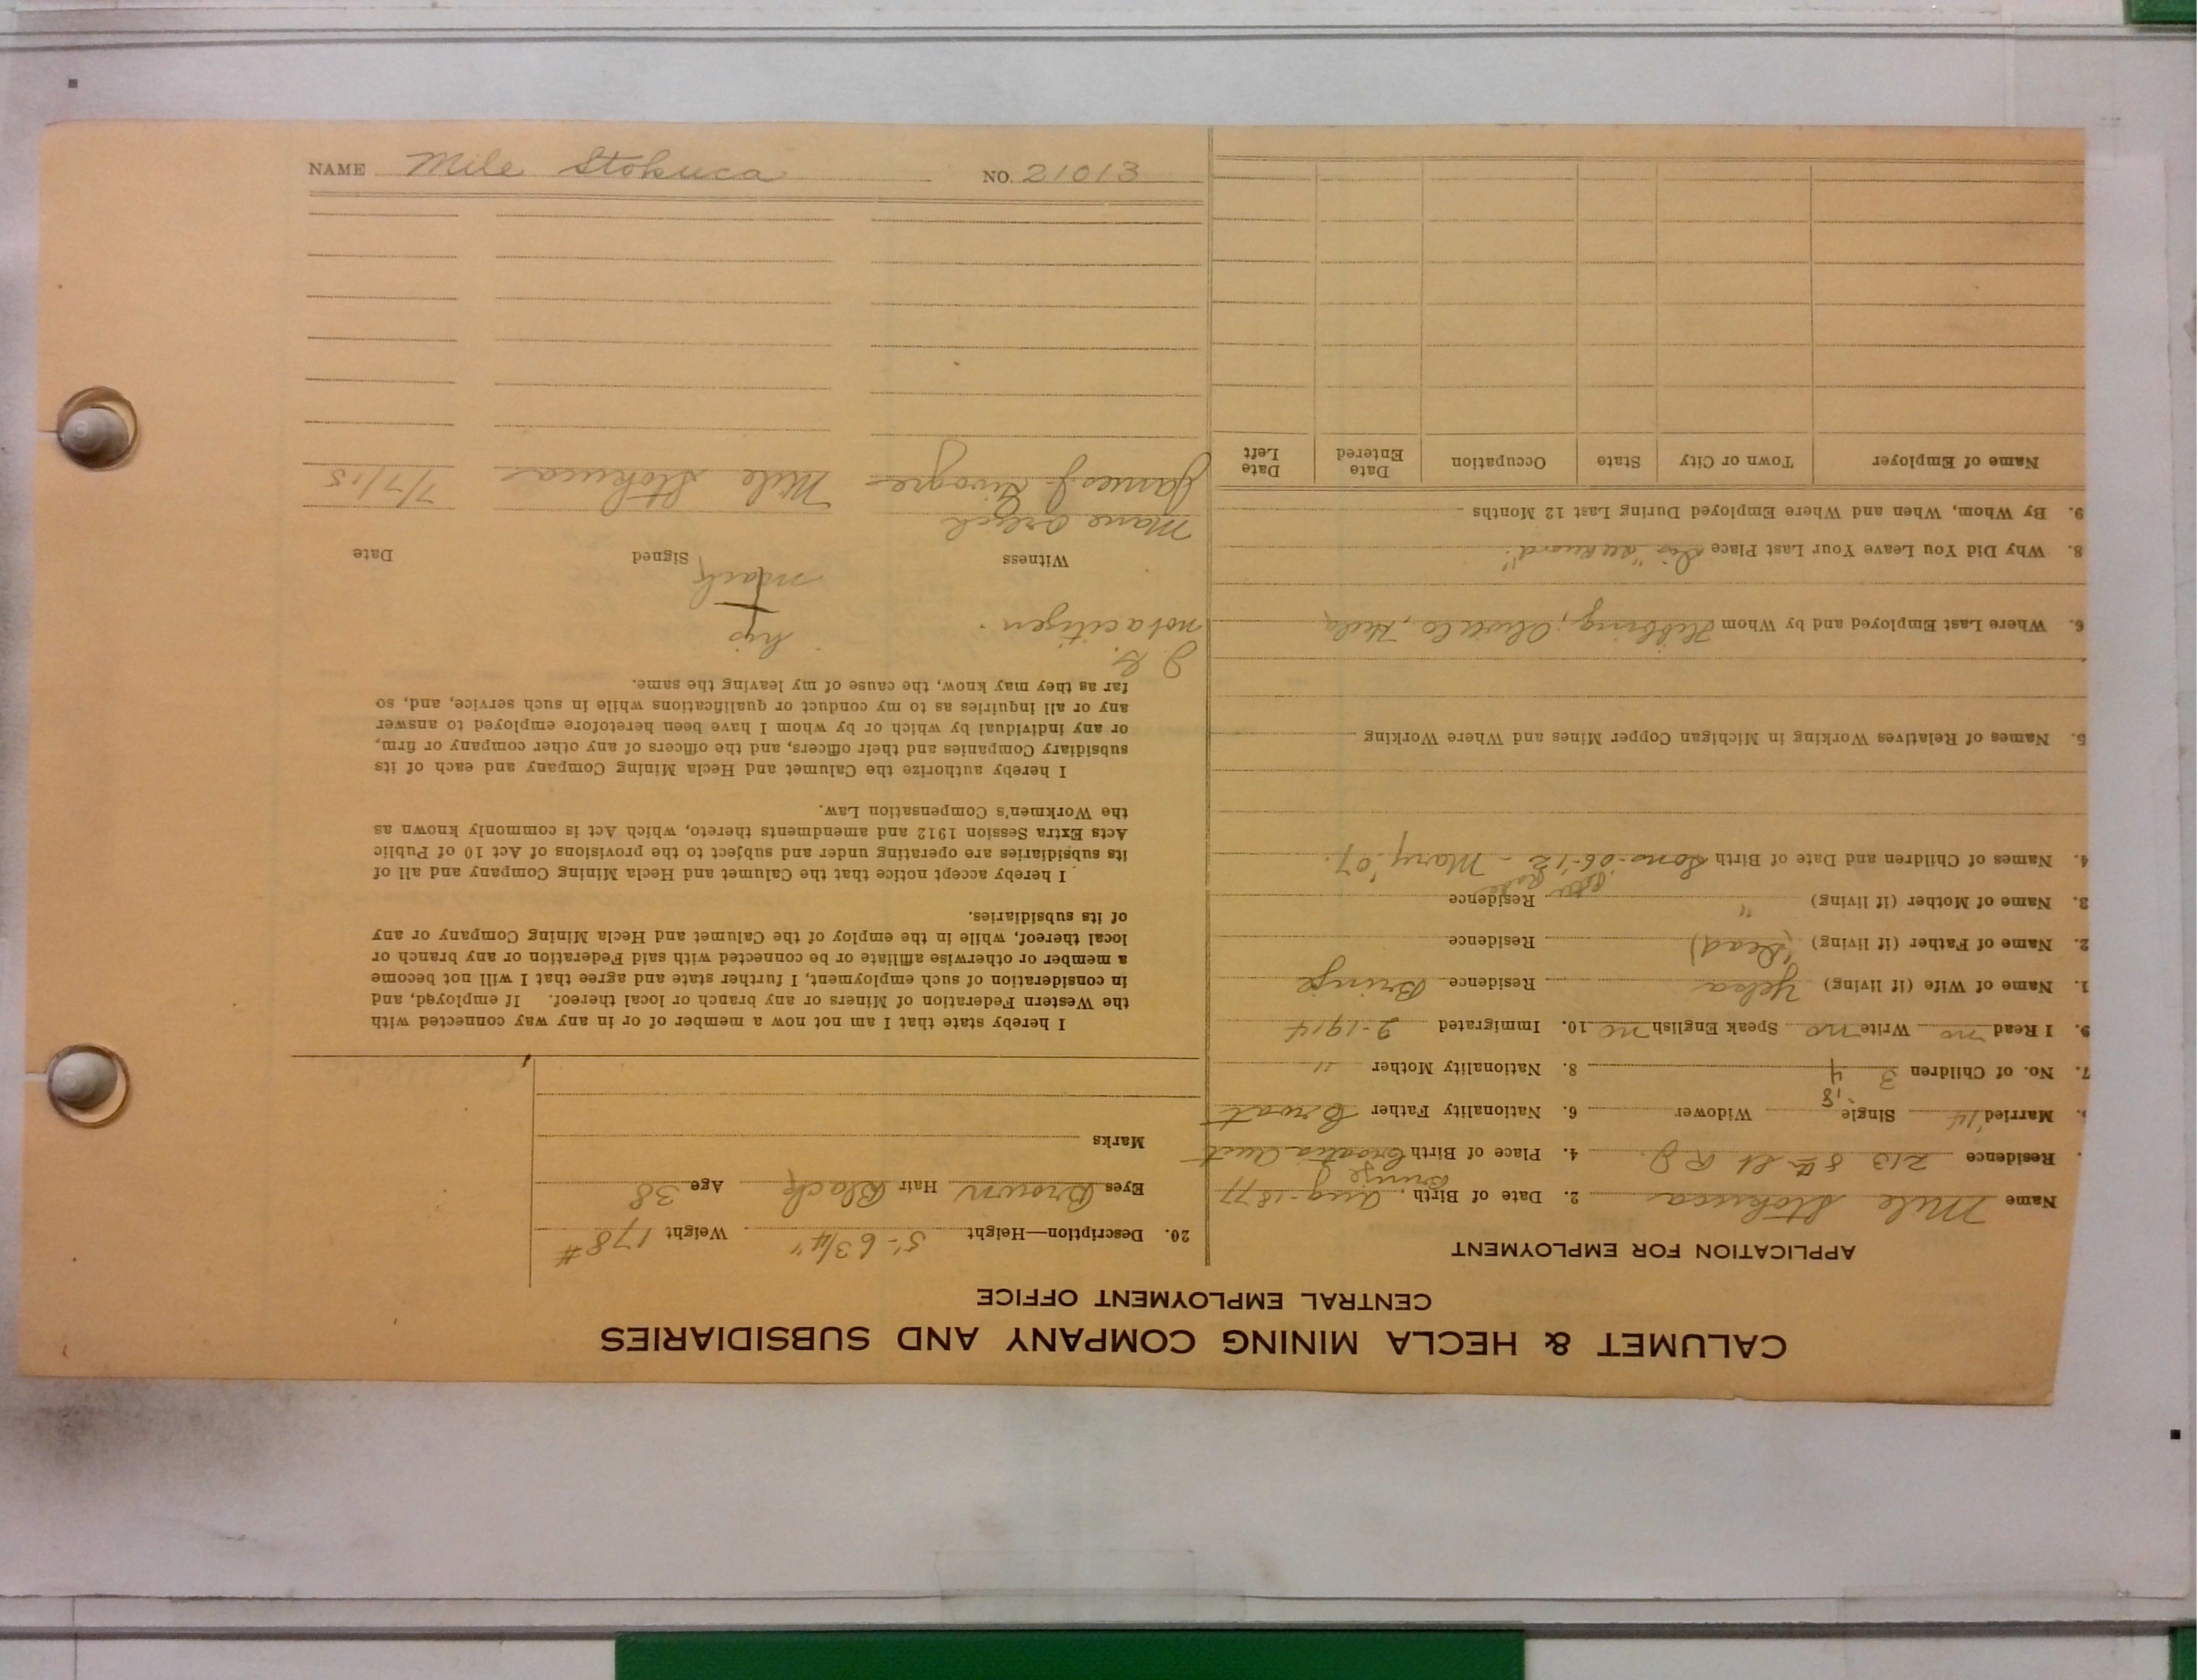 CALUMET & HECLA MINING COMPANY AND SUBSIDIARIES
CENTRAL EMPLOYMENT OFFICE
APPLICATION FOR EMPLOYMENT
Name Mile Stokuca 2. Date of Birth, Aug-1877
Brinje
Residence 213 8th St R.J. 4. Place of Birth Croatia Aust
Married '14 Single Widower 6. Nationality Father Croat
'8
7. No. of Children 3 4 8. Nationality Mother "
9. I Read no Write no Speak English no 10. Immigrated 2-1914
1. Name of Wife (if living) Yelsa Residence Brinje
2. Name of Father (if living) (Dead) Residence
3. Name of Mother (if living) " Residence
4. Names of Children and Date of Birth Sons-06-12 - Mary '07.
5. Names of Relatives Working in Michigan Copper Mines and Where Working
6. Where Last Employed and by Whom Hibbing, Oliver Co,
8. Why Did You Leave Your Last Place
9. By Whom, When and Where Employed During Last 12 Months
Name of Employer Town or City State Occupation Date Entered Date Left
20. Description—Height 5'-6 3/4" Weight 178 #
Eyes Brown Hair Black Age 38
Marks
I hereby state that I am not now a member of or in any way connected with
the Western Federation of Miners or any branch or local thereof. If employed, and
in consideration of such employment, I further state and agree that I will not become
a member or otherwise affiliate or be connected with said Federation or any branch or
local thereof, while in the employ of the Calumet and Hecla Mining Company or any
of its subsidiaries.
I hereby accept notice that the Calumet and Hecla Mining Company and all of
its subsidiaries are operating under and subject to the provisions of Act 10 of Public
Acts Extra Session 1912 and amendments thereto, which Act is commonly known as
the Workmen's Compensation Law.
I hereby authorize the Calumet and Hecla Mining Company and each of its
subsidiary Companies and their officers, and the officers of any other company or firm,
or any individual by which or by whom I have been heretofore employed to answer
any or all inquiries as to my conduct or qualifications while in such service, and, so
far as they may know, the cause of my leaving the same.
not a citizen. his
mark
Witness Signed Date
James J. Mile Stokuca 7/7/15
NAME Mile Stokuca NO. 21013